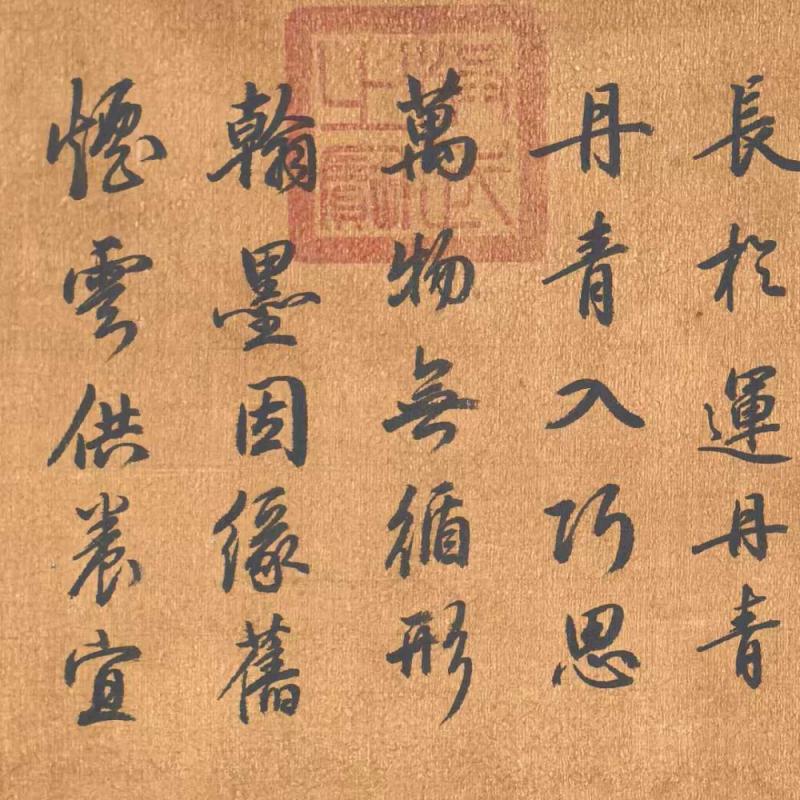 長於運丹青
丹青入巧思
萬物無循形
翰墨因緣舊
煙雲供養宜